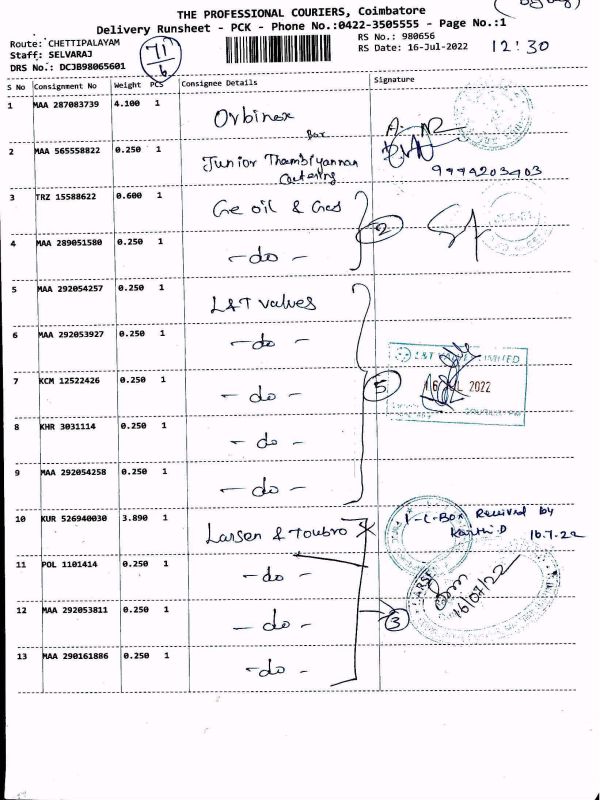 THE PROFESSIONAL COURIERS, Coimbatore
Delivery Runsheet - PCK - Phone No.:0422-3505555 - Page No.:1
Route: CHETTIPALAYAM
RS No.: 980656
Staff: SELVARAJ
RS Date: 16-Jul-2022
12:30
DRS No.: DCJB98065601
71
6
S No Consignment No Weight PCS Consignee Details Signature
1 MAA 287083739 4.100 1 Orbinox
Box
2 MAA 565558822 0.250 1 Junior Thambiyannan
Catering
9994203403
3 TRZ 15588622 0.600 1 Ge oil & Gas
2
4 MAA 289051580 0.250 1 -do-
5 MAA 292054257 0.250 1 L&T valves
6 MAA 292053927 0.250 1 -do-
L&T VALVES LIMITED
7 KCM 12522426 0.250 1 -do-
5
16 JUL 2022
8 KHR 3031114 0.250 1 -do-
9 MAA 292054258 0.250 1 -do-
10 KUR 526940030 3.890 1 Larsen & Toubro
1-C-Box Received by
Karthi.D 16.7.22
11 POL 1101414 0.250 1 -do-
16/07/22
12 MAA 292053811 0.250 1 -do-
3
13 MAA 290161886 0.250 1 -do-